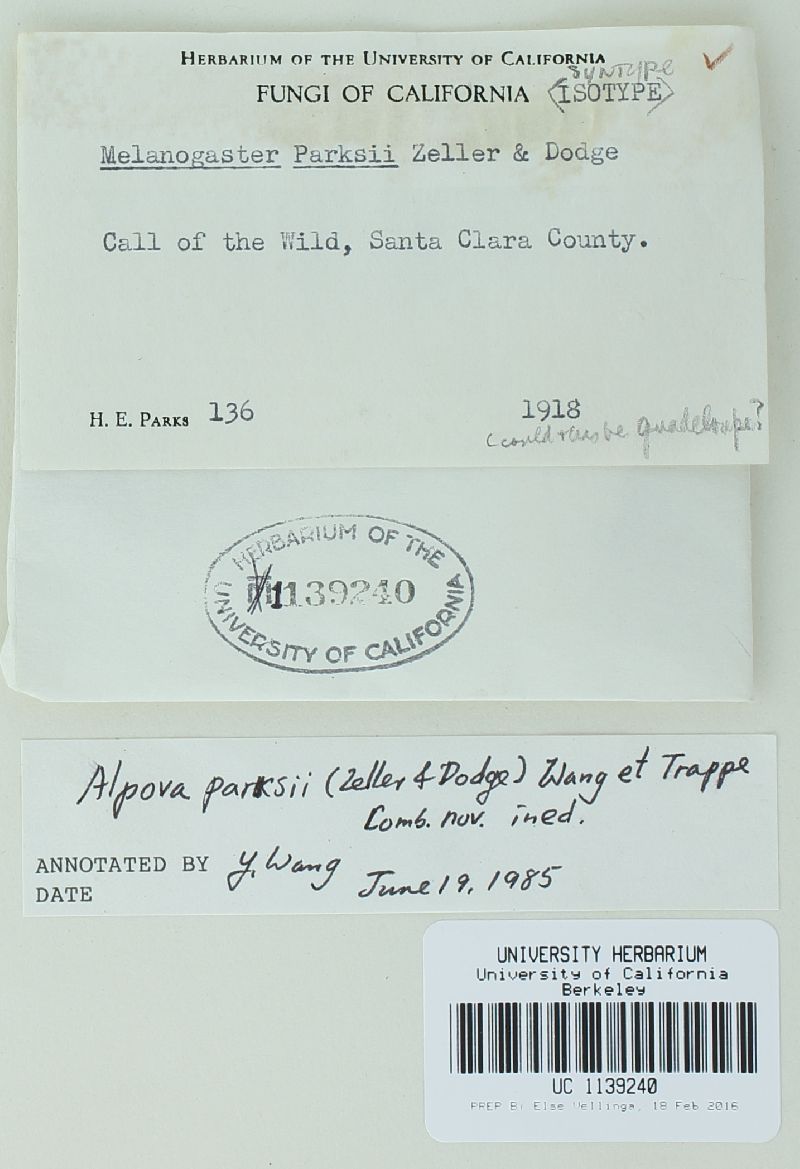 HERBARIUM OF THE UNIVERSITY OF CALIFORNIA
SYNTYPE
FUNGI OF CALIFORNIA <ISOTYPE>
Melanogaster Parksii Zeller & Dodge
Call of the Wild, Santa Clara County.
H. E. PARKS 136 1918
(could be guadeloupe?
HERBARIUM OF THE
1139240
UNIVERSITY OF CALIFORNIA
Alpova parksii (Zeller & Dodge) Wang et Trappe
Comb. nov. ined.
ANNOTATED BY Y. Wang
DATE June 19, 1985
UNIVERSITY HERBARIUM
University of California
Berkeley
UC 1139240
PREP BY Else Vellinga, 18 Feb 2016